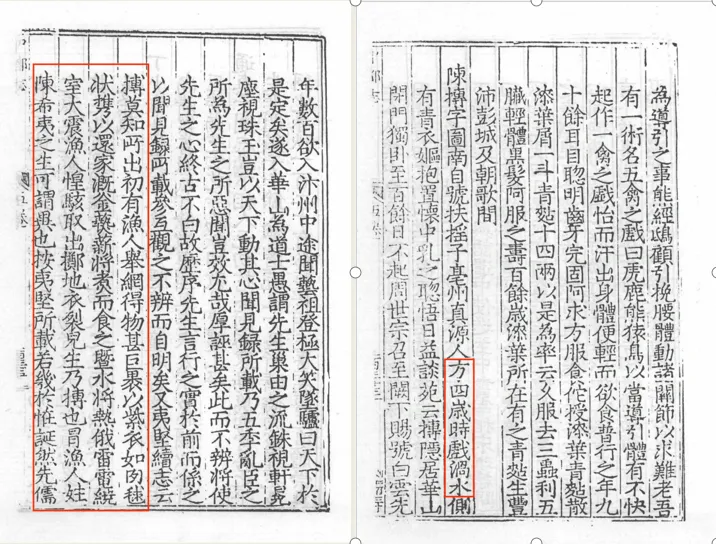 為導引之事能經鴟顧引挽腰體動諸關節以求難老吾
有一術名五禽之戲曰虎鹿熊猿鳥以當導引體有不快
起作一禽之戲怡而汗出身體便輕而欲食普行之年九
十餘耳目聰明齒牙完固阿求方服食佗授漆葉青黏散
漆葉屑一斗青黏十四兩以是為率云久服去三蟲利五
臟輕體黑髮阿服之壽百餘歲漆葉所在有之青黏生豐
沛彭城及朝歌間
陳摶字圖南自號扶搖子亳州真源人方四歲時戲渦水側
有青衣嫗抱置懷中乳之聰悟日益談苑云摶隱居華山
閉門獨卧至百餘日不起周世宗召至闕下賜號白雲先
年數百欲入汴州中途聞藝祖登極大笑墜驢曰天下於
是定矣遂入華山為道士愚謂先生巢由之流銖視軒冕
塵視珠玉豈以天下動其心聞見錄所載乃五季亂臣之
所為先生之所惡聞豈效尤哉厚誣甚矣此而不辨將使
先生之心終古不白故歷序先生言行之實於前而係之
以聞見錄所載參互觀之不辨而自明矣又夷堅續志云
摶莫知所出初有漁人舉網得物甚巨裹以紫衣如肉毬
狀攜以還家溉釜爇薪將煑而食之暨水將熱俄雷電繞
室大震漁人惶駭取出擲地衣裂兒生乃摶也冒漁人姓
陳希夷之生可謂異也按夷堅所載若幾於怪誕然先儒